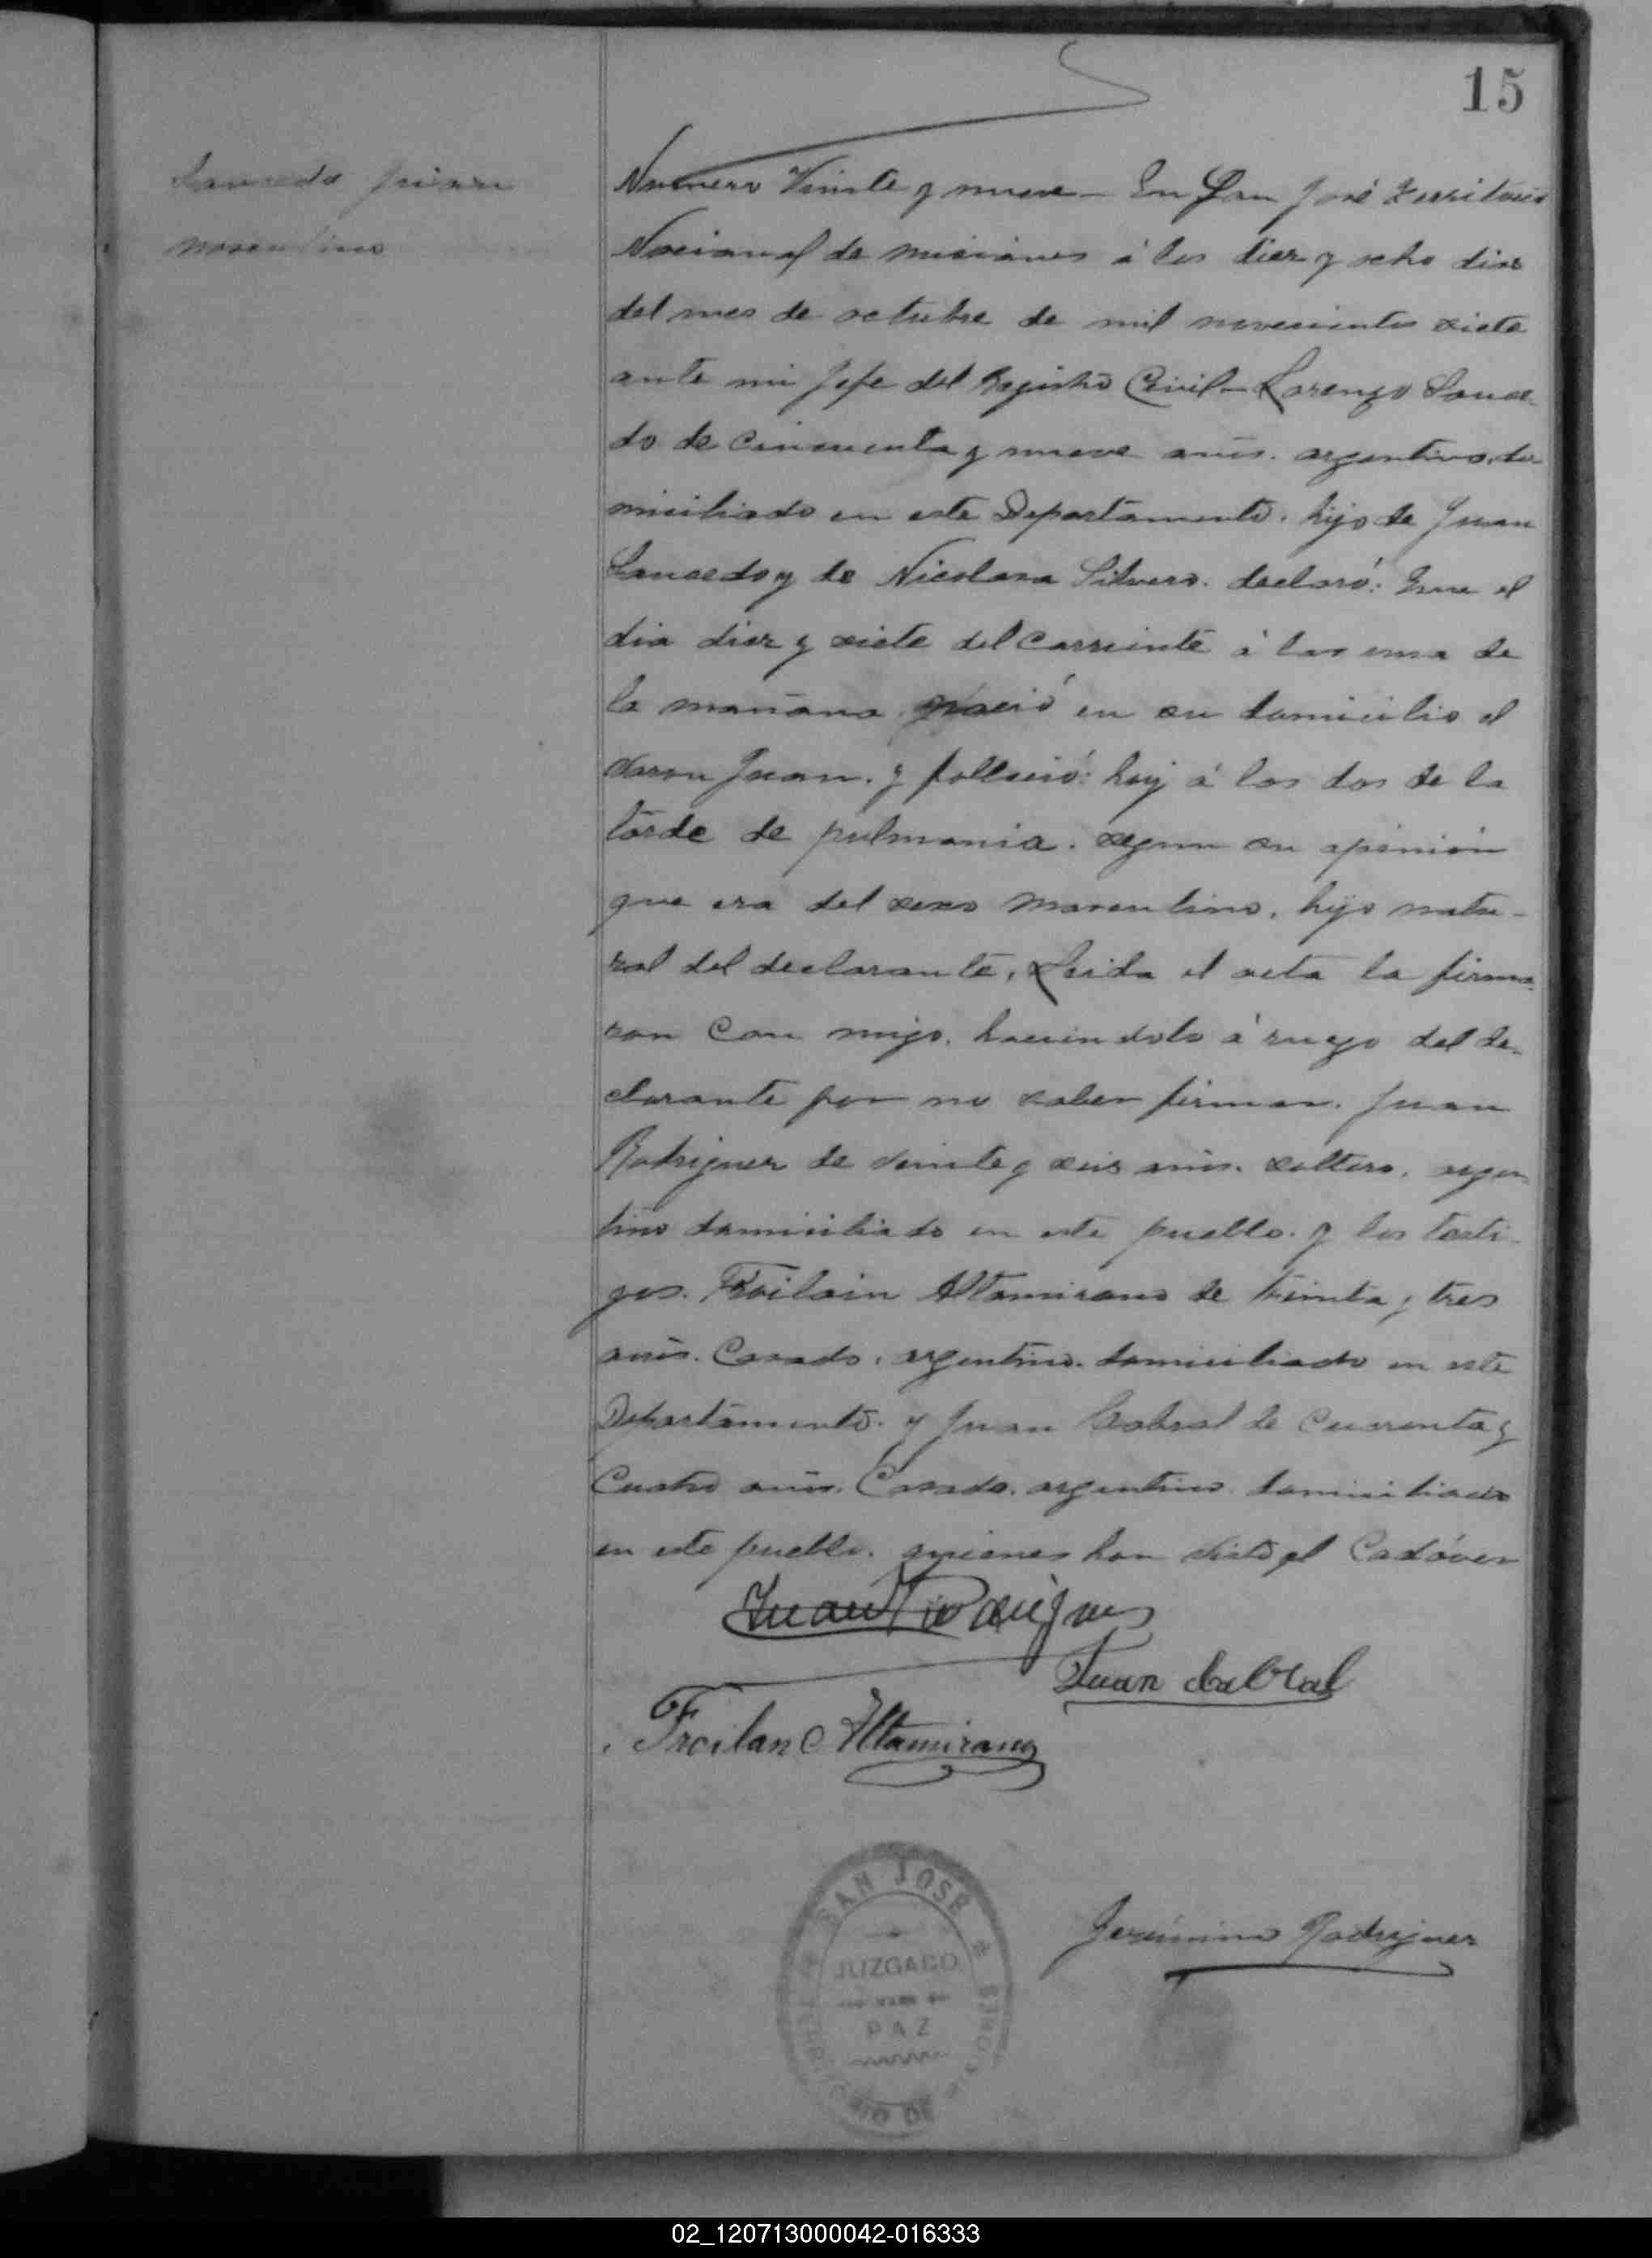 15
Saucedo Juan
masculino
Numero Veinte y nueve - En San José Territorio
Nacional de misiones á los diez y ocho dias
del mes de octubre de mil novecientos siete
ante mi Jefe del Registro Civil - Lorenzo Sauce-
do de Cincuenta y nueve años. argentino, do-
miciliado en este Departamento. hijo de Juan
Saucedo y de Nicolasa Silvero. declaró: Que el
dia diez y siete del Corriente á las una de
la mañana nació en su domicilio el
varon Juan. y fallició: hoy á las dos de la
tarde de pulmonia. segun su opinión
que era del sexo masculino, hijo natu-
ral del declarante, Leida el acta la firma-
ron Con migo. haciendolo á ruego del de-
clarante por no saber firmar. Juan
Rodriguez de veinte y seis años. soltero. argen-
tino domiciliado en este pueblo. y los testi-
gos. Froilain Altamirano de treinta y tres
años. Casado, argentino. domiciliado en este
Departamento. y Juan Cabral de Cuarenta y
Cuatro años. Casado. argentino. domiciliado
en este pueblo. quienes han visto el Cadáver
Juan Rodrigues
Juan Cabral
Froilan Altamirano
SAN JOSÉ
JUZGADO
PAZ
TERRITORIO DE MISIONES
Jerónimo Rodriguez
02_120713000042-016333